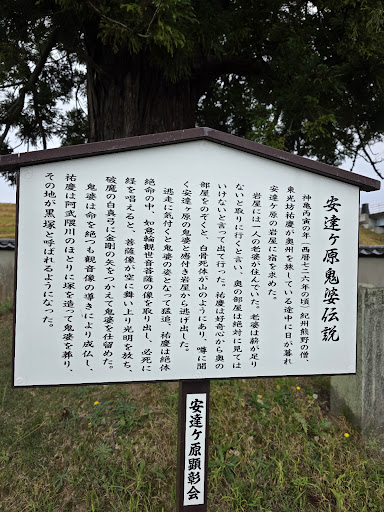 安達ヶ原鬼婆伝説
神亀丙寅の年（西暦七二六年の頃）紀州熊野の僧、
東光坊祐慶が奥州を旅している途中に日が暮れ
安達ヶ原の岩屋に宿を求めた。
岩屋には一人の老婆が住んでいた。老婆は薪が足り
ないと取りに行くと言い、奥の部屋は絶対に見ては
いけないと言って出て行った。祐慶は好奇心から奥の
部屋をのぞくと、白骨死体が山のようにあり、噂に聞
く安達ヶ原の鬼婆と感付き岩屋から逃げ出した。
逃走に気付くと鬼婆の姿となって猛追、祐慶は絶体
絶命の中、如意輪観世音菩薩の像を取り出し、必死に
経を唱えると、菩薩像が空に舞い上り光明を放ち、
破魔の白真弓に金剛の矢をつかえて鬼婆を仕留めた。
鬼婆は命を絶つも観音像の導きにより成仏し、
祐慶は阿武隈川のほとりに塚を造って鬼婆を葬り、
その地が黒塚と呼ばれるようになった。
安達ヶ原顕彰会